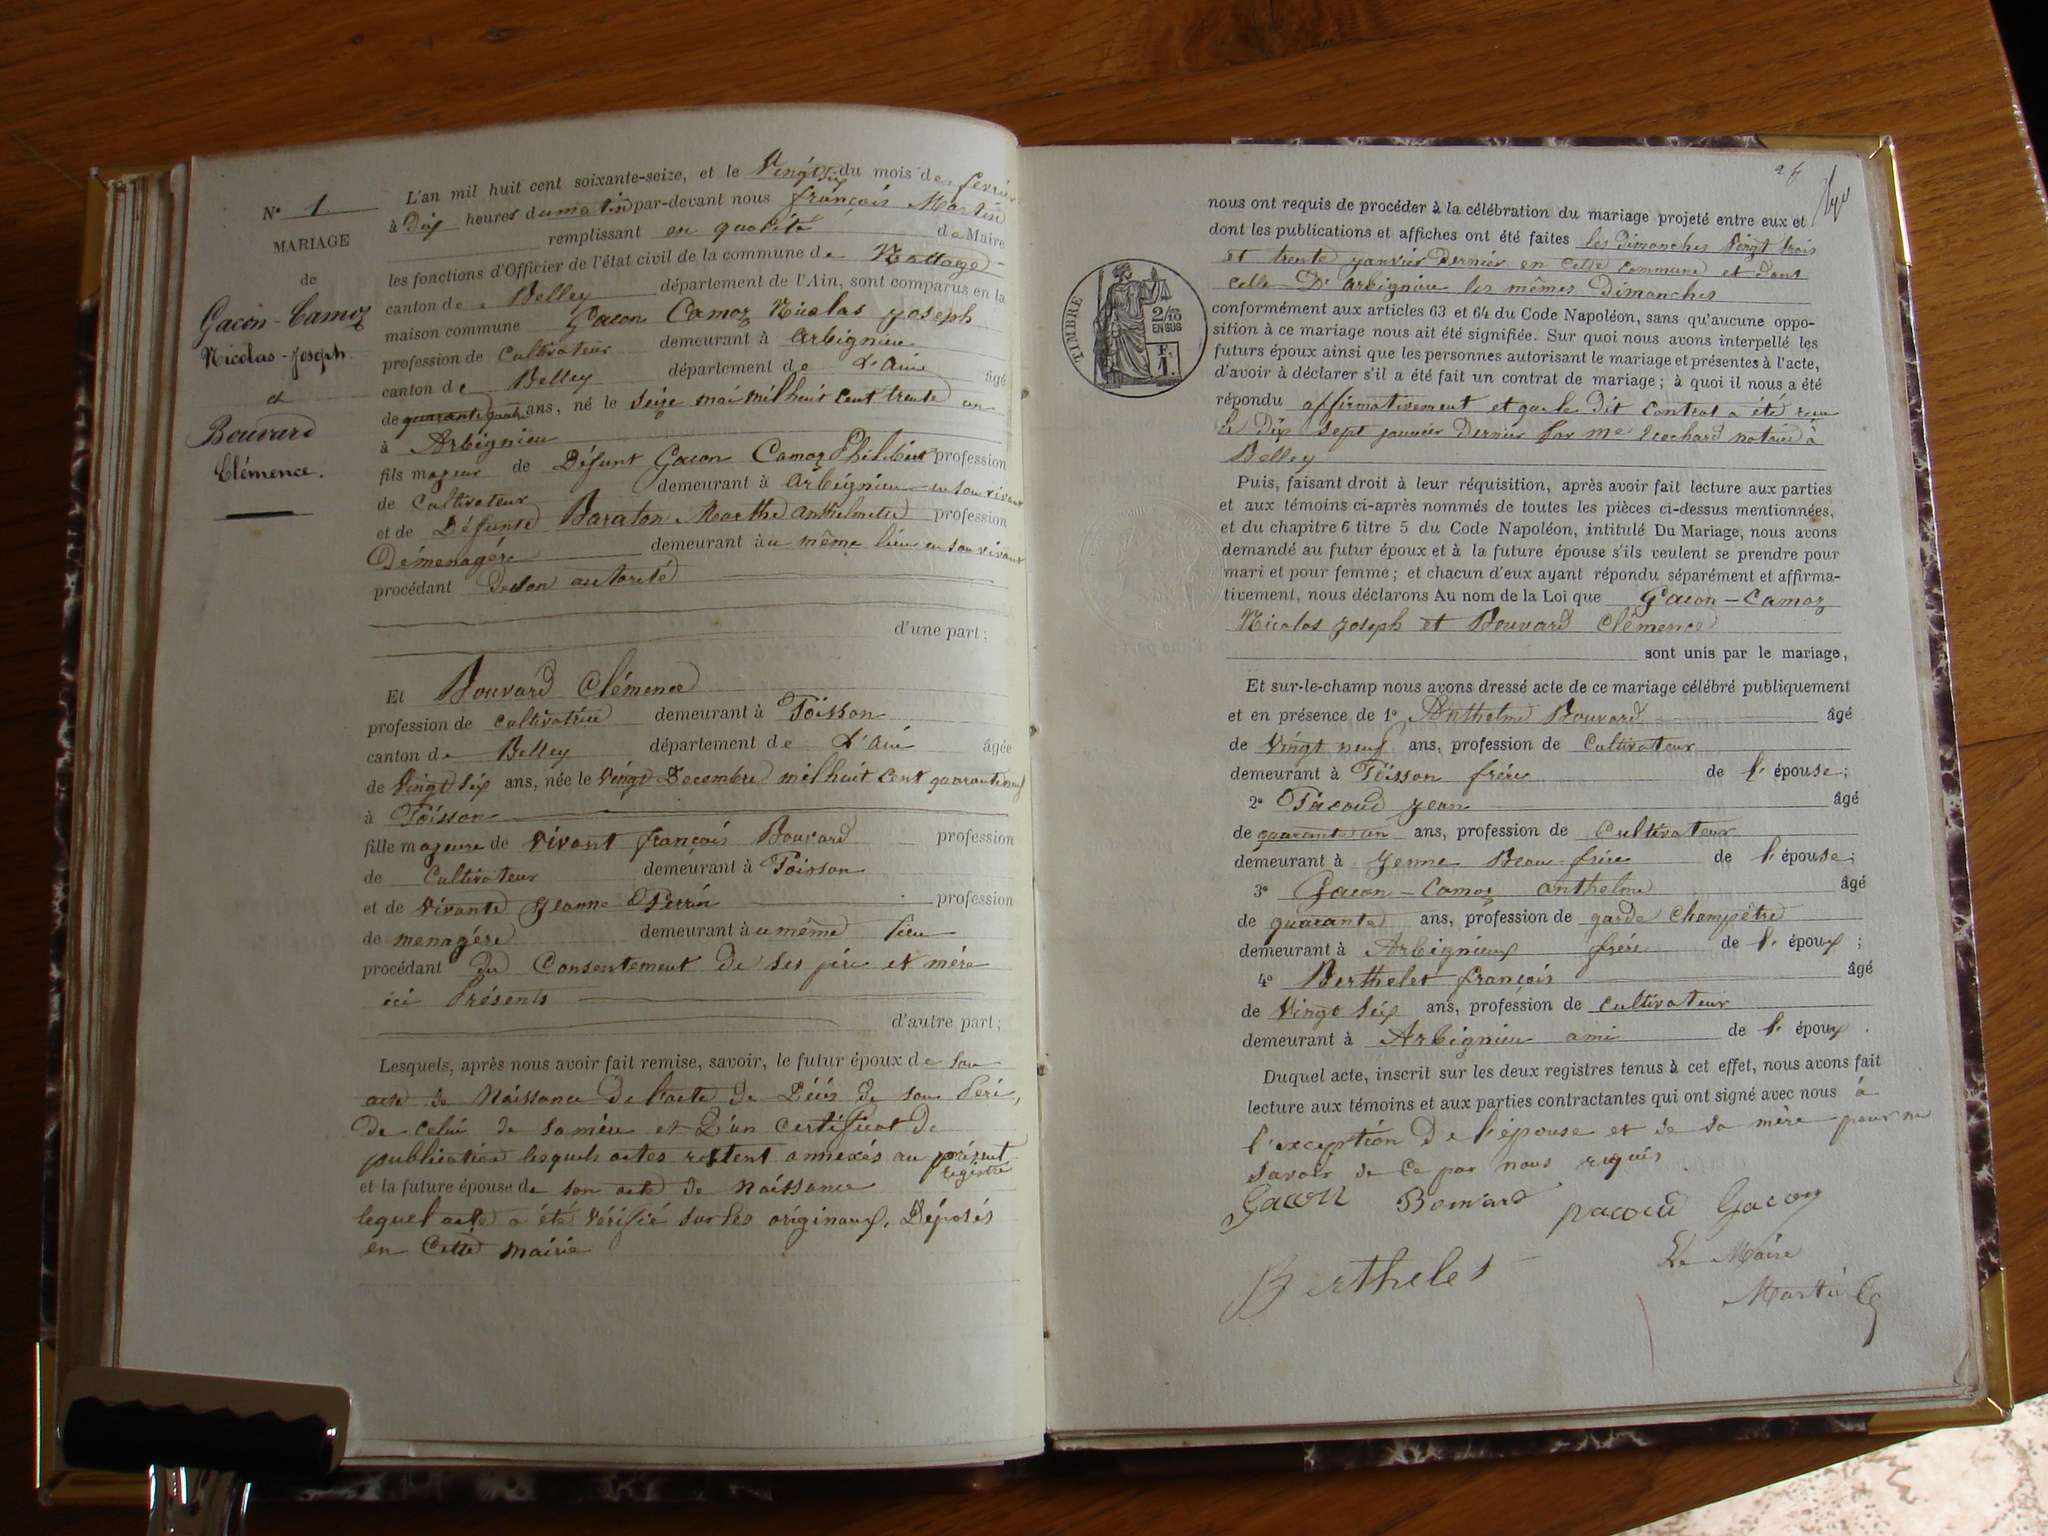 N° 1
MARIAGE
de
Gacon-Camoz
Nicolas-Joseph
et
Bouvard
Clémence.
L'an mil huit cent soixante-seize, et le Vingt six du mois de février
à Dix heures du matin par-devant nous françois Martin
remplissant en qualité de Maire
les fonctions d'Officier de l'état civil de la commune de Nattage
canton de Belley département de l'Ain, sont comparus en la
maison commune Gacon Camoz Nicolas Joseph
profession de Cultivateur demeurant à Arbignieu
canton de Belley département de L'Ain âgé
de quarante quatre ans, né le seize mai mil huit cent trente un
à Arbignieu
fils majeur de Défunt Gacon Camoz Philibert profession
de Cultivateur demeurant à Arbignieu en son vivant
et de Défunte Baraton Marthe Anthelmette profession
De menagére demeurant au même lieu en son vivant
procédant De son autorité
d'une part;
Et Bouvard Clémence
profession de cultivatrice demeurant à Poisson
canton de Belley département de L'Ain âgée
de Vingt six ans, née le Vingt Decembre mil huit cent quarante neuf
à Poisson
fille majeure de vivant françois Bouvard profession
de Cultivateur demeurant à Poisson
et de vivante Jeanne Perrin profession
de menagére demeurant au même lieu
procédant du Consentement de ses pére et mére
ici Présents
d'autre part;
Lesquels, après nous avoir fait remise, savoir, le futur époux de son
acte de Naissance De l'acte de Décés de son Pére,
de celui de sa mére et D'un certificat de
publication lesquels actes restent annexés au présent
registre
et la future épouse de son acte de Naissance
lequel acte a été vérifié sur les originaux, Déposés
en Cette mairie
nous ont requis de procéder à la célébration du mariage projeté entre eux et
dont les publications et affiches ont été faites les Dimanches Vingt trois
et trente janvier Dernier en cette commune et dans
celle D'Arbignieu les mêmes Dimanches
TIMBRE
2/10
EN SUS
F.
1.
conformément aux articles 63 et 64 du Code Napoléon, sans qu'aucune oppo-
sition à ce mariage nous ait été signifiée. Sur quoi nous avons interpellé les
futurs époux ainsi que les personnes autorisant le mariage et présentes à l'acte,
d'avoir à déclarer s'il a été fait un contrat de mariage; à quoi il nous a été
répondu affirmativement et que le dit contrat a été reçu
le dix sept janvier Dernier Par Me notaire à
Belley
Puis, faisant droit à leur réquisition, après avoir fait lecture aux parties
et aux témoins ci-après nommés de toutes les pièces ci-dessus mentionnées,
et du chapitre 6 titre 5 du Code Napoléon, intitulé Du Mariage, nous avons
demandé au futur époux et à la future épouse s'ils veulent se prendre pour
mari et pour femme; et chacun d'eux ayant répondu séparément et affirma-
tivement, nous déclarons Au nom de la Loi que Gacon-Camoz
Nicolas Joseph et Bouvard Clémence
sont unis par le mariage,
Et sur-le-champ nous avons dressé acte de ce mariage célébré publiquement
et en présence de 1° Anthelme Bouvard âgé
de vingt neuf ans, profession de Cultivateur
demeurant à Poisson frére de l'épouse;
2° Pacoud Jean âgé
de quarante un ans, profession de Cultivateur
demeurant à Yenne Beau-frére de l'épouse;
3° Gacon-Camoz Anthelme âgé
de quarante ans, profession de garde Champêtre
demeurant à Arbignieux frére de l'époux;
4° Berthelet françois âgé
de Vingt six ans, profession de cultivateur
demeurant à Arbignieu ami de l'époux.
Duquel acte, inscrit sur les deux registres tenus à cet effet, nous avons fait
lecture aux témoins et aux parties contractantes qui ont signé avec nous à
l'exception De l'épouse et de sa mére pour ne
savoir de ce par nous requis
Gacon Bouvard pacoud Gacon
Berthelet
Le Maire
Martin